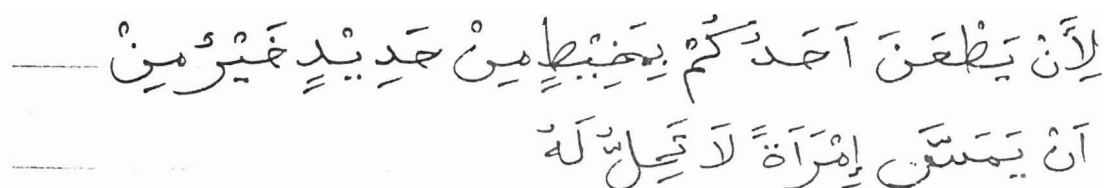 لِأَنْ يَظْعَنَ اَحَدُكُمْ بِخِيْطٍ مِنْ حَدِيْدٍ خَيْرٌ مِنْ
اَنْ يَمَسَّ إِمْرَاَةً لَا تَحِلُّ لَهُ